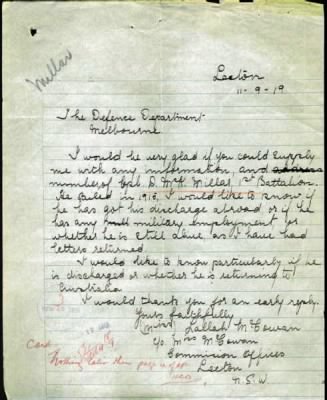 Millar
Leeton
11-9-19
The Defence Department
Melbourne
I would be very glad if you could supply
me with any information, and address
number of Cpl. D. McK Millar, 1st Battalion.
He sailed in 1915. I would like to know if
he has got his discharge abroad or if he
has any military employment or
whether he is still alive, as I have had
letters returned.
I would like to know particularly if he
is discharged or whether he is returning to
Australia
I would thank you for an early reply.
Yours faithfully
(Miss) Lallah McCowan
C/o Mrs McCowan
Commission Offices
Leeton
N.S.W.
3
Card
Nothing later than page